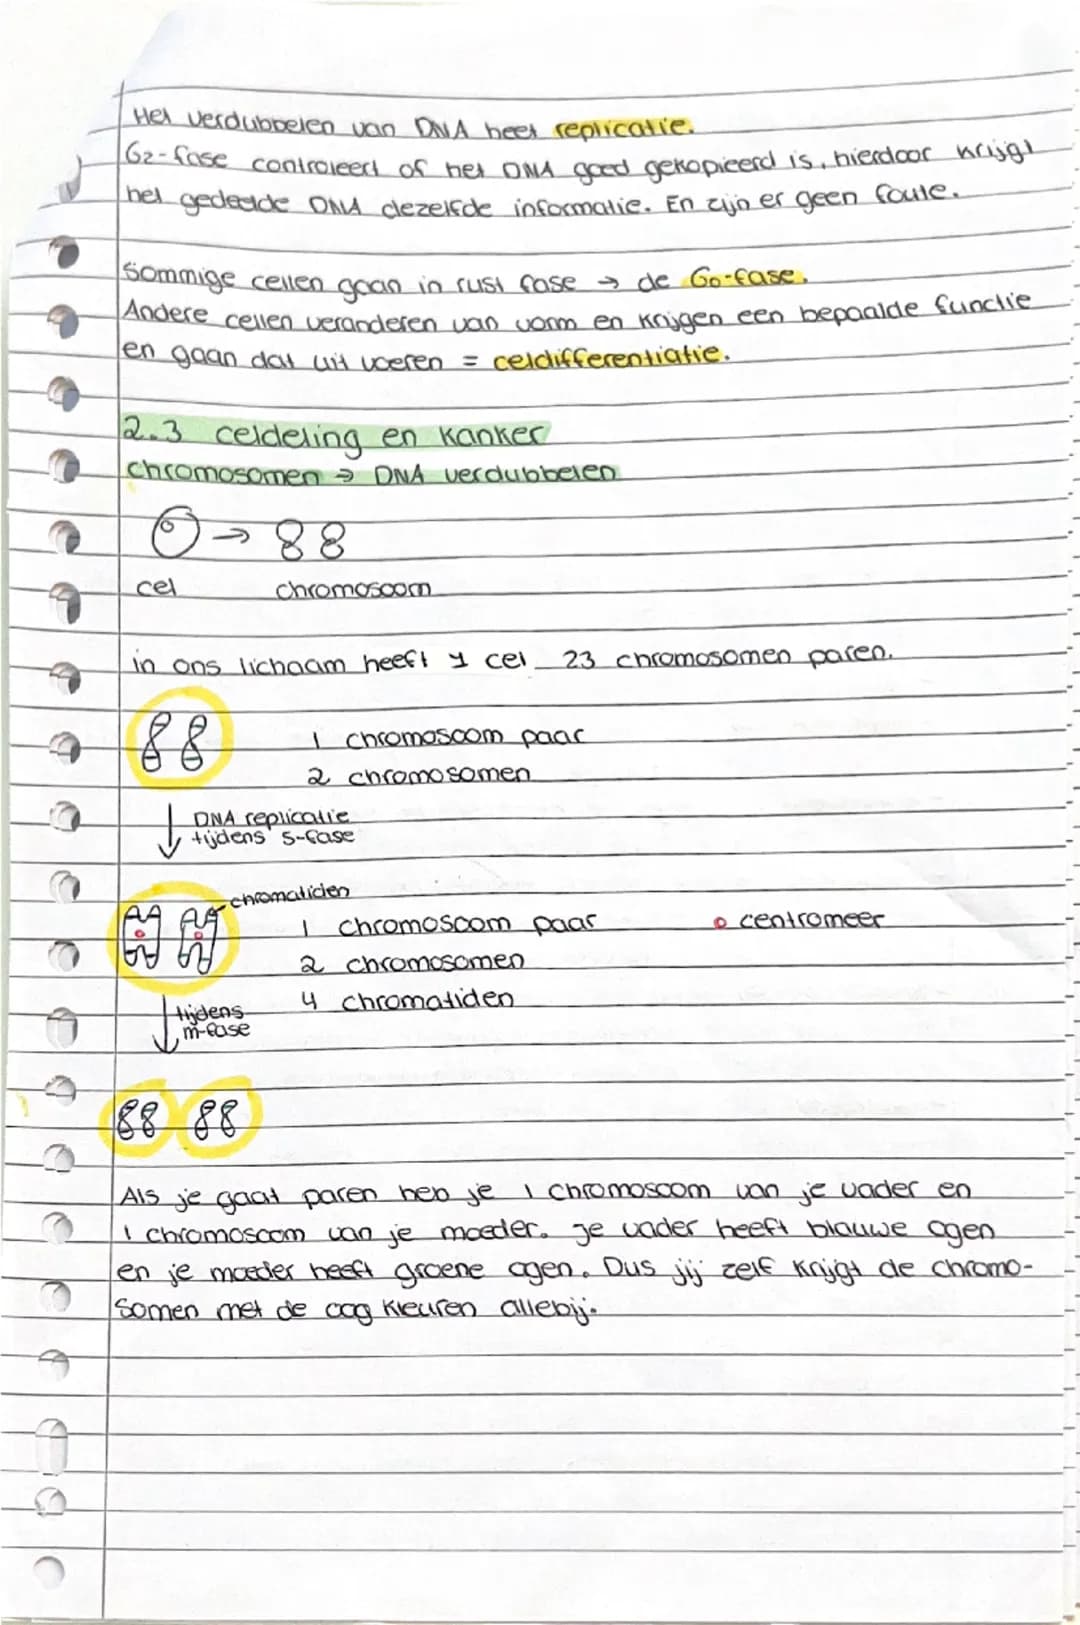 Het verdubbelen van DNA heet replicatie.
G2-fase controleert of het DNA goed gekopieerd is, hierdoor krijgt
het gedeelde DNA dezelfde informatie. En zijn er geen foute.
Sommige cellen gaan in rust fase → de G0-fase.
Andere cellen veranderen van vorm en krijgen een bepaalde functie
en gaan dat uit voeren = celdifferentiatie.
2.3 celdeling en kanker
chromosomen → DNA verdubbelen
→
cel chromosoom
in ons lichaam heeft 1 cel 23 chromosomen paren.
1 chromosoom paar
2 chromosomen
DNA replicatie
tijdens S-fase
chromatiden
1 chromosoom paar centromeer
2 chromosomen
4 chromatiden
tijdens
m-fase
Als je gaat paren heb je 1 chromosoom van je vader en
1 chromosoom van je moeder. Je vader heeft blauwe ogen
en je moeder heeft groene ogen. Dus jij zelf krijgt de chromo-
somen met de oog kleuren allebij.